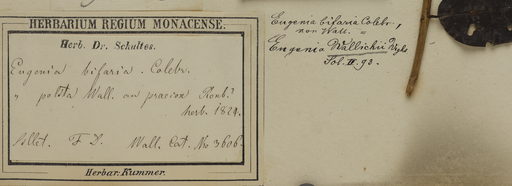 HERBARIUM REGIUM MONACENSE.
Herb. Dr. Schultes.
Eugenia bifaria Colebr.
" Wall. an praecox Roxb?
herb. 1824.
Wall. Cat. No 3606.
Herbar: Kummer.
Eugenia bifaria Colebr.,
non Wall. =
Eugenia Wallichii Wght
Ic. II. 93.